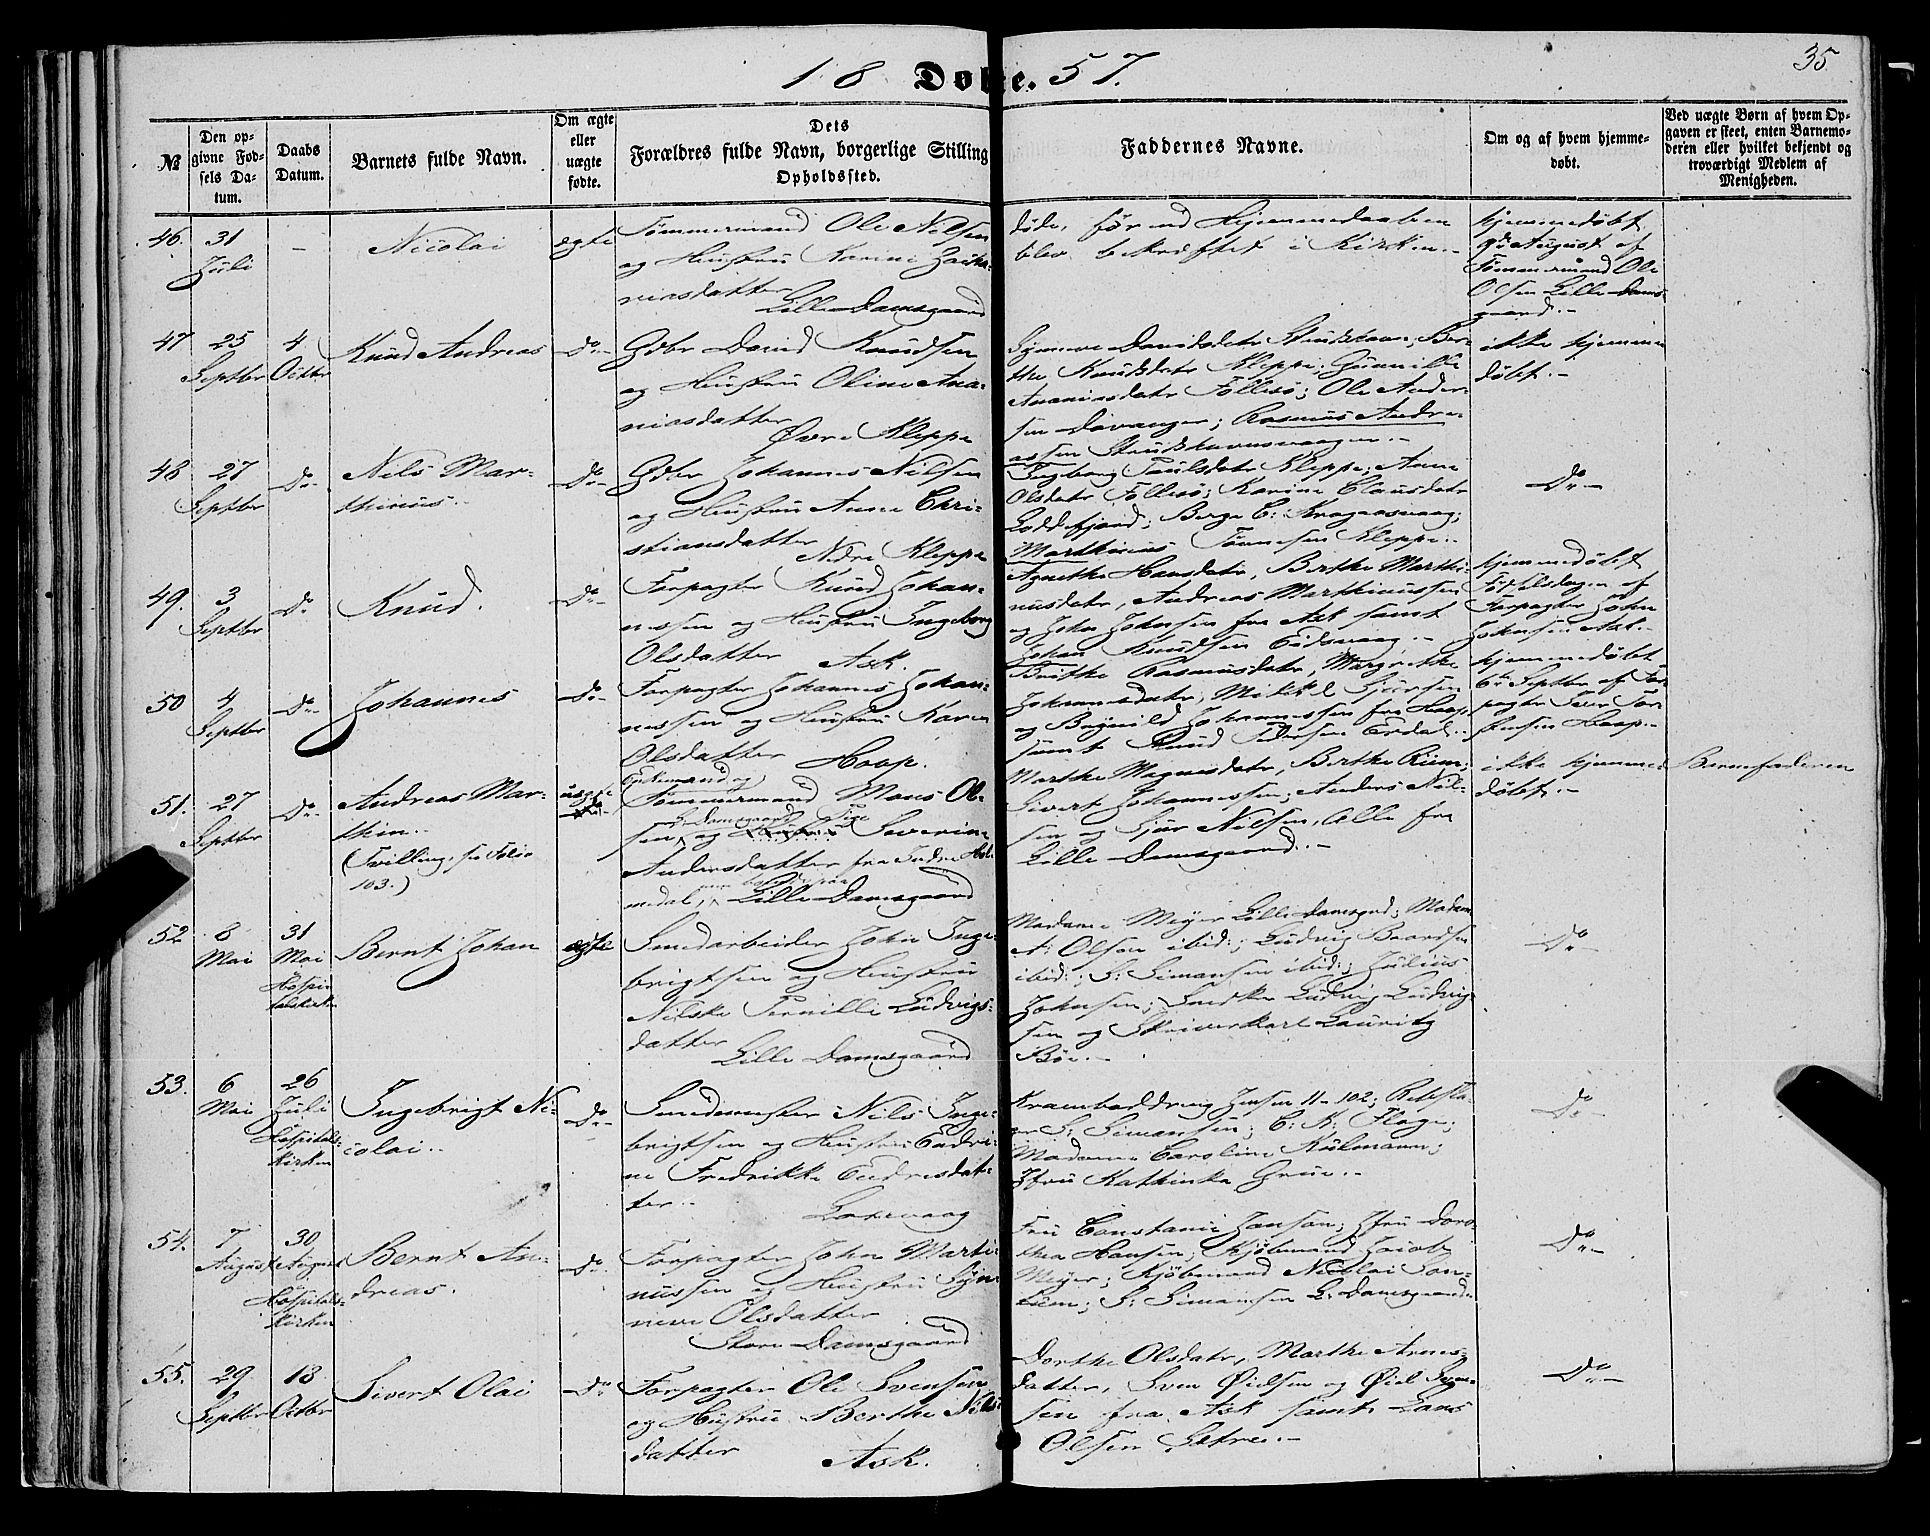 35
18 Døbte. 57.
№
Den op-
givne Fød-
sels Da-
tum.
Daabs
Datum.
Barnets fulde Navn.
Om ægte
eller
uægte
fødte.
Dets
Forældres fulde Navn, borgerlige Stilling
Opholdssted.
Faddernes Navne.
Om og af hvem hjemme-
døbt.
Ved uægte Børn af hvem Op-
gaven er skeet, enten Barnemo-
deren eller hvilket bekjendt og
troværdigt Medlem af
Menigheden.
46.
31
Juli
-
Nicolai
ægte
Tømmermand Ole Nilsen
og Hustru Karine Zacha-
riasdatter
Lille Damsgaard
døde, før end Hjemmedaaben
blev bekræftet i Kirken.-
hjemmedøbt
August af
Tømmermand Ole
Olsen Lille Dams-
gaard.-
47
25
Septbr
4
Octbr
Knud Andreas
Do-
Gdbr David Knudsen
og Hustru Oline Ana-
niasdatter
Øvre Kleppe
Synneve Davidsdatr Studshavn, Ber-
the Knudsdatr Kleppe, Gunnille
Ananiasdatr Follesø; Ole Ander-
sen Davanger; Rasmus Andre-
assen Studshavnvaagen.-
ikke hjemme
døbt.-
48
27
Septbr
Do-
Nils Mar-
thinus.
Do-
Gdbr Johannes Nilsen
og Hustru Anne Chri-
stiansdatter
Nedre Kleppe
Ingeborg Paulsdatr Kleppe; Anne
Olsdatr Follesø; Karine Clausdatr
Loddefjord; Berge C: Kragaasvaag;
Marthinus Tønnesen Kleppe.
Do-
49.
3
Septbr
Do
Knud.
Do-
Forpagter Knud Johan-
nessen og Hustru Ingeborg
Olsdatter Ask.
Agnethe Hansdatr, Berthe Marthi-
nusdatr, Andreas Marthinussen
og John Johnsen fra Ask samt
Johan Knudsen Eidsvaag.-
hjemmedøbt
Fødselsdagen af
Forpagter John
Johnsen Ask.-
50
4
Septbr
Do-
Johannes
Do-
Forpagter Johannes Johan-
nessen og Hustru Karen
Olsdatter Hoop.
Brithe Rasmusdatr, Margrethe
Johannesdatr, Mikkel
og Johannessen fra Hoop
samt Knud Pedersen Erdal.
hjemmedøbt
6te Septbr af For-
pagter Iver Tor-
Hoop.-
51.
27
Septbr
Do-
Andreas Mar-
thin.
(Tvilling, se Folio
103.)
uægte
Enkemand og
Tømmermand Mons Ol-
sen L. Damsgaard og Pige Severine
Andersdatter fra Indre Hol-
medal,
Lille Damsgaard
Marthe Magnusdatr, Berthe
Sivert Johannessen; Anders Nil-
sen og Sjur Nilsen, Alle fra
Lille Damsgaard.-
ikke hjemme
døbt.-
Barnefaderen
52
8
Mai
31
Mai
Hospi-
talskirken
Bernt Johan
ægte
Smedarbeider John Inge-
brigtsen og Hustru
Nilske Pernille Ludvigs-
datter
Lille Damsgaard
Madame Meyer Lille Damsgrd; Madam
A: Olsen ibid:; Ludvig Baardsen
ibid:; S: Simonsen ibid:; Julius
Johnsen; Snedker Ludvig Ludvig-
sen og Skriverkarl Lauritz
Böe.-
Do-
53.
6
Mai
26
Juli
Hospitals-
kirken
Ingebrigt Ni-
colai.
Do-
Smedemester Nils Inge-
brigtsen og Hustru Endri-
ne Fredrikke Endresdat-
ter.
Laxevaag
Jensen 11-102; Rebsla-
ger S: Simonsen; C. K: Flage;
Madame Caroline Kuhlmann;
Jfru Kathinka Grue.-
Do-
54.
7
August
30
August
Hospitals-
kirken
Bernt An-
dreas.
Do-
Forpagter John Marti-
nussen og Hustru Syn-
neve Olsdatter
Store Damsgaard
Fru Constance Jansen; Jfru Doro-
thea Hansen; Kjøbmand Jacob
Meyer; Kjøbmand Nicolai
S: Simonsen L: Damsgaard.
Do-
55.
29
Septbr
18
Octbr
Sivert Olai
Do-
Forpagter Ole Svensen
og Hustru Berthe Nils-
datter Ask.
Dorthe Olsdatr, Marthe Arnes-
datter, Sven Øielsen og Øiel Sven-
sen fra Ask samt Lars
Olsen Sætre.-
Do-